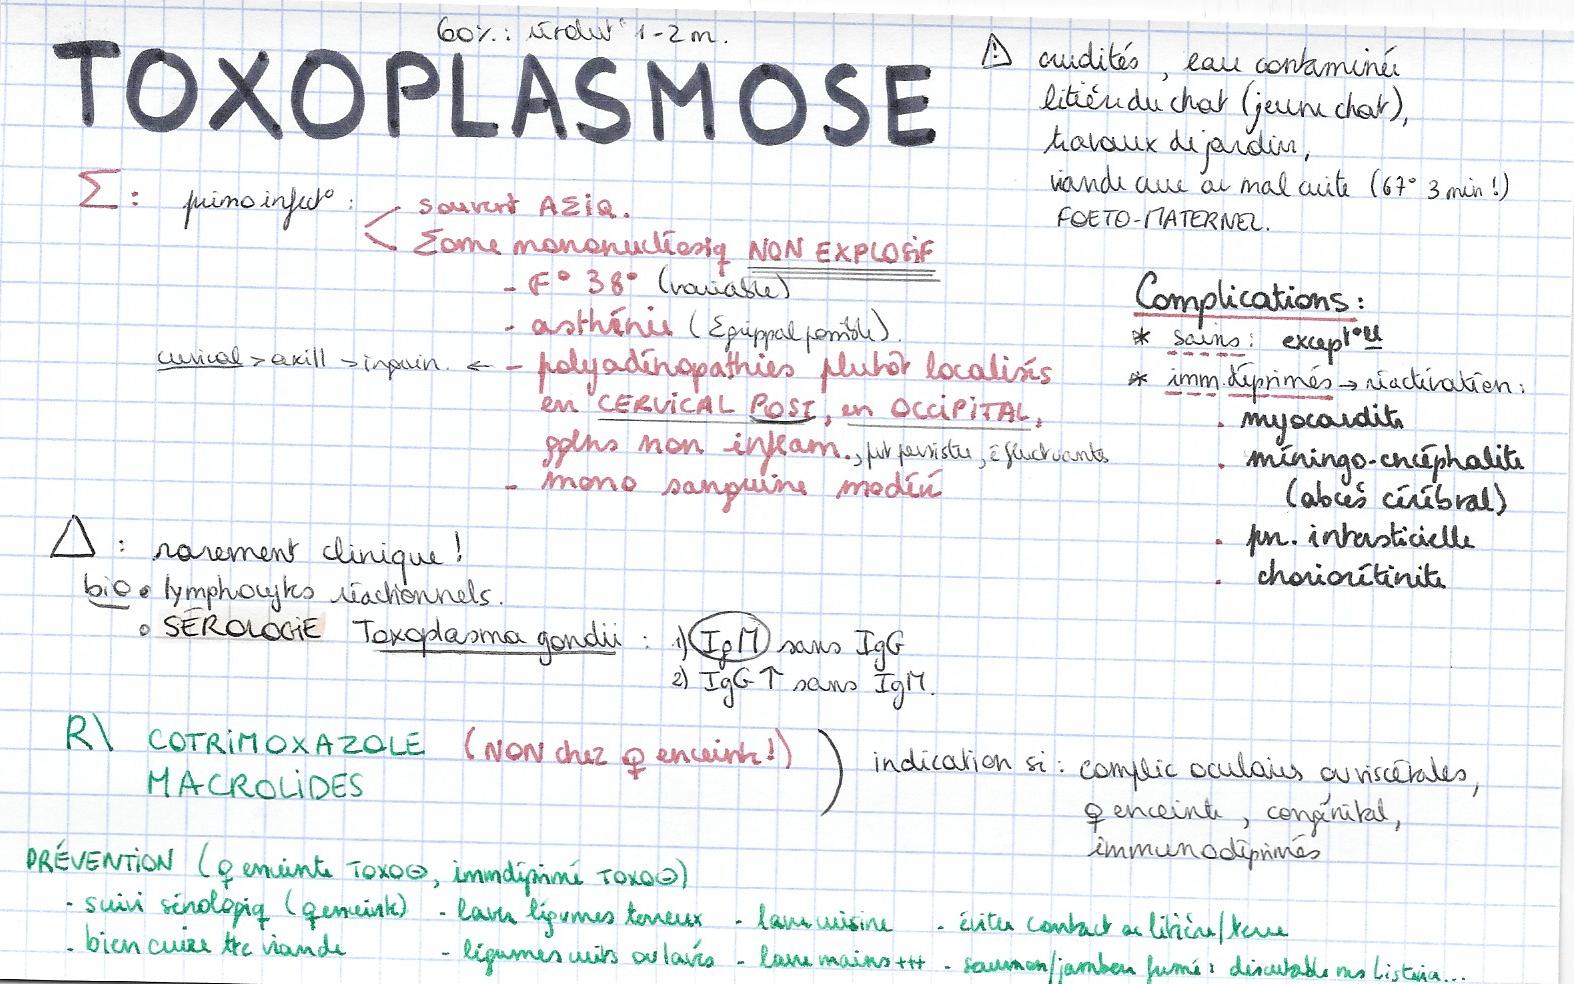 60% : réduct° 1-2 m.
TOXOPLASMOSE
⚠ crudités, eau contaminée
litière du chat (jeune chat),
travaux de jardin,
viande crue ou mal cuite (67° 3 min !)
FOETO-MATERNEL.
Σ : primoinfect° :
souvent AΣiQ.
Σome mononucléosiq NON EXPLOSIF
- F° 38° (variable)
- asthénie (Σ grippal possible).
cervical > axill > inguin. ← - polyadénopathies plutôt localisés
en CERVICAL POST, en OCCIPITAL,
gglns non inflam., pt persister, fluctuants
- mono sanguine modéré
Complications :
* sains : except°el
* imm.déprimés → réactivation :
. myocardite
. méningo-encéphalite
(abcès cérébral)
. pn. intersticielle
. choriorétinite
Δ : rarement clinique !
bio • lymphocytes réactionnels.
• SÉROLOGIE Toxoplasma gondii : 1) IgM sans IgG
2) IgG ↑ sans IgM.
R\ COTRIMOXAZOLE (NON chez ♀ enceinte !)
MACROLIDES
indication si : complic oculaires ou viscérales,
♀ enceinte, congénital,
immunodéprimés
PRÉVENTION (♀ enceinte TOXO⊖, immdéprimé TOXO⊖)
- suivi sérologiq (♀enceinte) - laver légumes terreux - laver cuisine - éviter contact ac litière/terre
- bien cuire tte viande - légumes cuits ou lavés - laver mains +++ - saumon/jambon fumé : discutable ms Listeria...